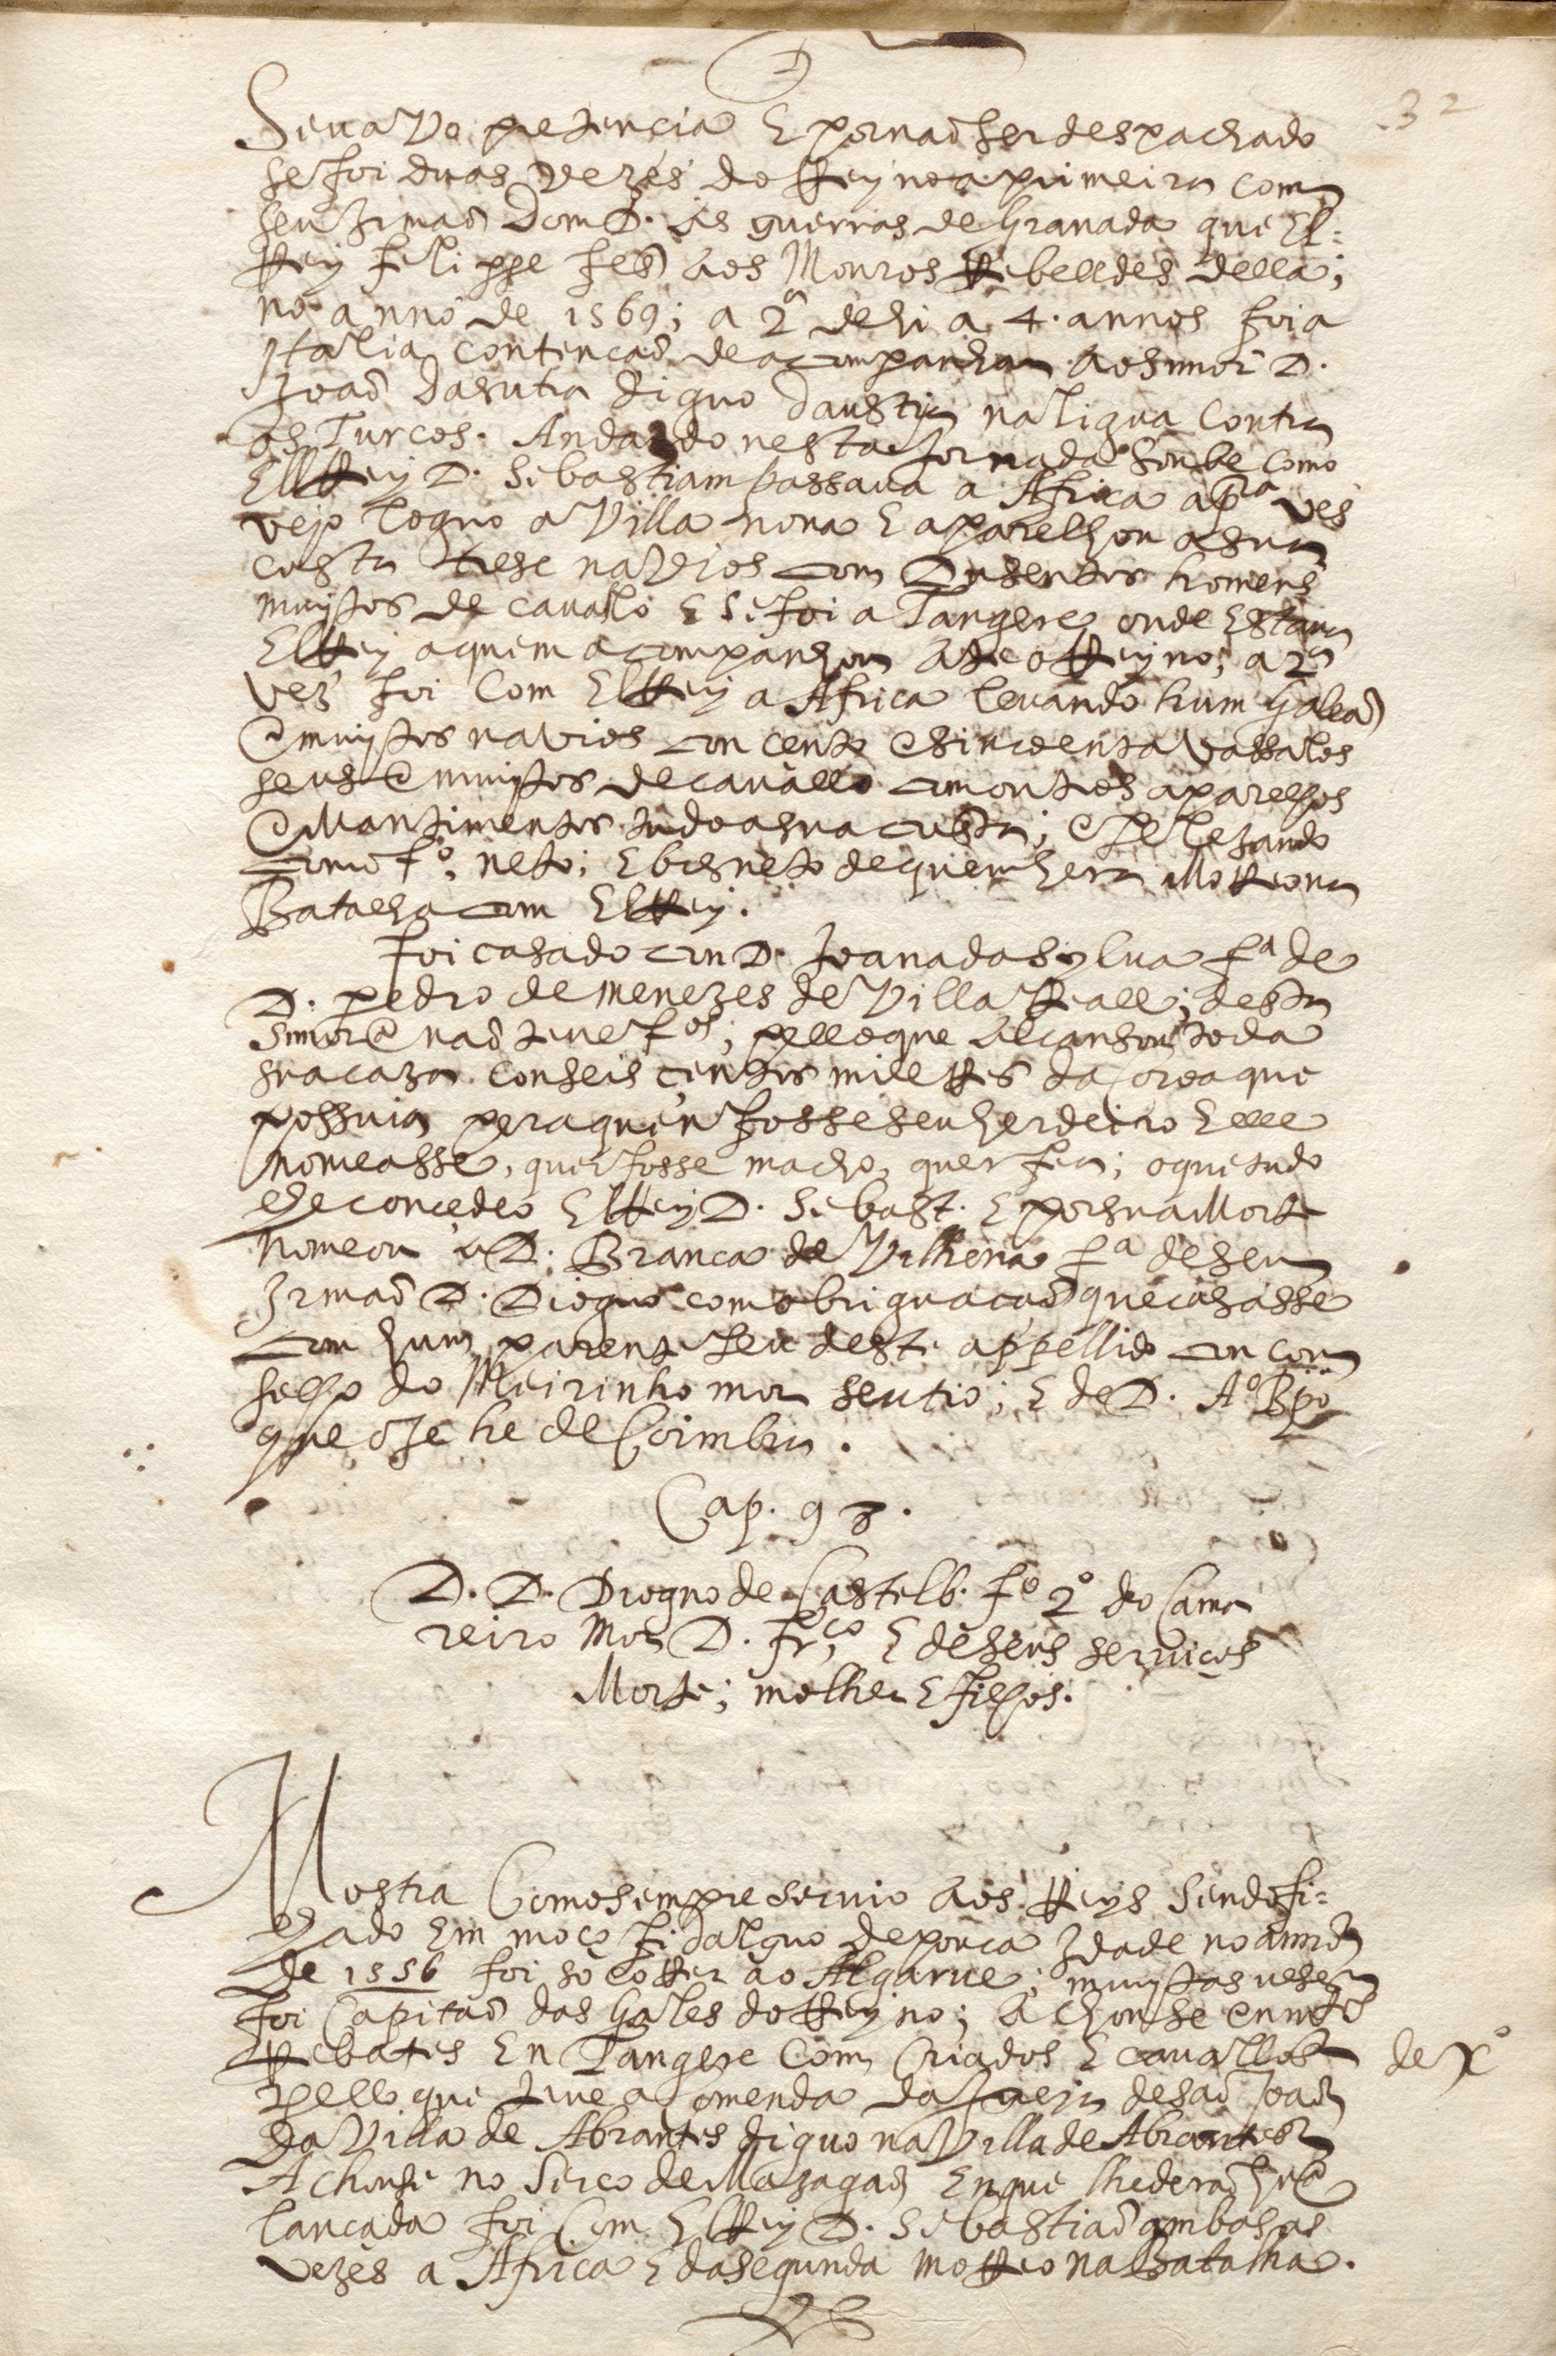 32
seu avo pretencia E por naõ ser despachado
se foi duas vezes do Reyno a primeira com
seu Irmaõ Dom D. ás guerras de Granada que El=
Rey felippe fes aos Mouros Rebelldes della;
no anno de 1569; a 2ª dehi a 4. annos foi a
Italia contencaõ de acompanhar ao snnor D.
Joaõ dasutia diguo daustria na ligua Contra
os Turcos. Andando nesta Jornada soube como
ElRey D. Sebastiam passaua a Africa a pª ves
veio loguo a Villa noua E aparelhou a sua
custa trese navios com Dusentos homens
muytos de cauallo E se foi a Tangere onde Estaua
ElRey a quem acompanhou ate o Reyno; a 2ª
vez foi Com ElRey a Africa leuando hum galeaõ
e muytos navios com cento e sincoenta vassalos
seus e muytos de cauallo com outros aparelhos
e Mantimentos tudo a sua custa; e Pelejando
como fº, neto; E bisneto de quem hera Morreo na
Batalha com ElRey.
foi casado com D. Joana da sylua fª de
D. pedro de menezes de Villa Reall; desta
snnora naõ teue fos; pello que alcansou toda
sua caza con seis centos mil Res da coroa que
possuia pera quen fosse seu herdeiro E elle
nomeasse, quer fosse macho, quer fea; o que tudo
lhe concedeo ElRey D. Sebast. E por sua Morte
nomeou a D. Branca de Vilhena fª de seu
Irmaõ D. Dioguo com obriguacaõ que casasse
com hum parente seu deste appellido con con
selho do Meirinho mor seu tio; E de D. Aº Bpo
que oje he de Coimbra.
Cap. 98.
D. D. Dioguo de Castelb. fº 2º do Cama
reiro Mor D. frco E de seus seruicos
Morte; molher E filhos.
Mostra Como sempre seruio aos Reys sendo fi=
lhado Em moço fidalguo de pouca Idade no anno
de 1556 foi socorrer ao Algarue; muytas veses
foi Capitaõ das Gales do Reyno; achouse en mtos
Rebates En Tangere Com Criados E cauallos
pello que teue a Comenda da Igreja de saõ Joaõ
de Xº
da Villa de Abrantes diguo na Villa de Abrantes
Achouse no Serco de Mazagaõ En que lhe deraõ hua
lancada foi Com ElRey D. Sebastiaõ ambas as
vezes a Africa E da segunda morreo na Batalha.